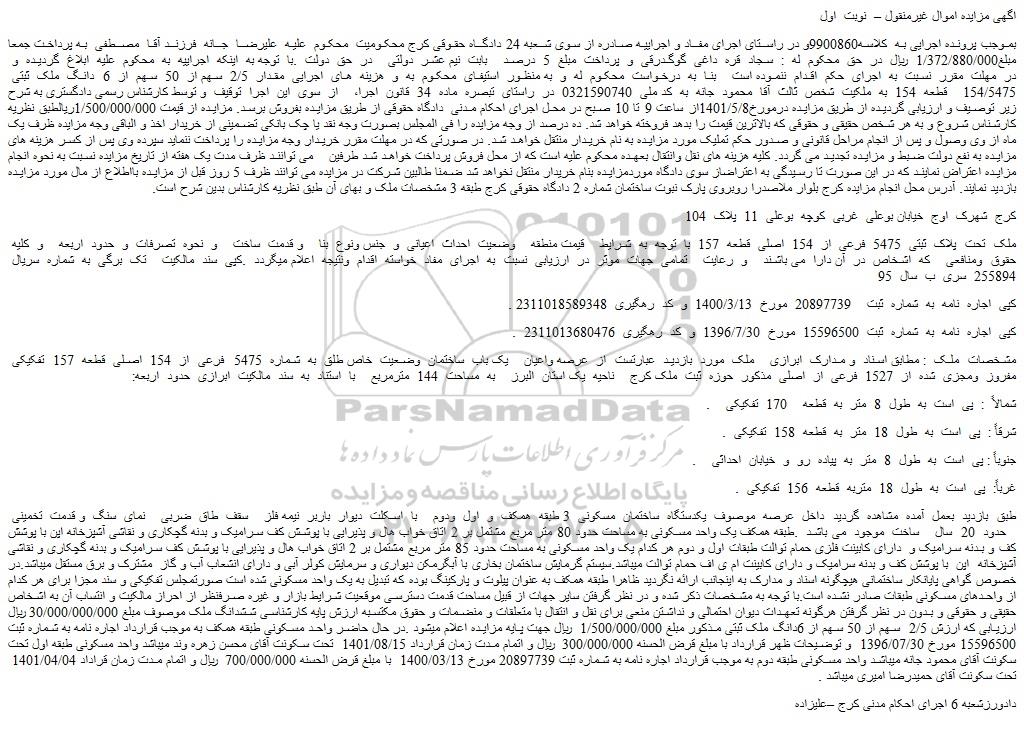 اگهی مزایده اموال غیرمنقول – نوبت اول
بموجب پرونده اجرایی به کلاسه9900860و در راستای اجرای مفاد و اجراییه صادره از سوی شعبه 24 دادگاه حقوقی کرج محکومیت محکوم علیه علیرضا جانه فرزند آقا مصطفی به پرداخت جمعا
مبلغ1/372/880/000 ریال در حق محکوم له : سجاد قره داغی گوگدرقی و پرداخت مبلغ 5 درصد بابت نیم عشر دولتی در حق دولت .با توجه به اینکه اجراییه به محکوم علیه ابلاغ گردیده و
در مهلت مقرر نسبت به اجرای حکم اقدام ننموده است بنا به درخواست محکوم له و به منظور استیفای محکوم به و هزینه های اجرایی مقدار 2/5 سهم از 50 سهم از 6 دانگ ملک ثبتی
154/5475 قطعه 154 به ملکیت شخص ثالث آقا محمود جانه به کد ملی 0321590740 در راستای تبصره ماده 34 قانون اجراء از سوی این اجرا توقیف و توسط کارشناس رسمی دادگستری به شرح
زیر توصیف و ارزیابی گردیده از طریق مزایده درمورخ1401/5/8از ساعت 9 تا 10 صبح در محل اجرای احکام مدنی دادگاه حقوقی از طریق مزایده بفروش برسد. مزایده از قیمت 1/500/000/000ریالطبق نظریه
کارشناس شروع و به هر شخص حقیقی و حقوقی که بالاترین قیمت را بدهد فروخته خواهد شد. ده درصد از وجه مزایده را فی المجلس بصورت وجه نقد یا چک بانکی تضمینی از خریدار اخذ و الباقی وجه مزایده ظرف یک
ماه از وی وصول و پس از انجام مراحل قانونی و صدور حکم تملیک مورد مزایده به نام خریدار منتقل خواهد شد. در صورتی که در مهلت مقرر خریدار وجه مزایده را پرداخت ننماید سپرده وی پس از کسر هزینه های
مزایده به نفع دولت ضبط و مزایده تجدید می گردد. کلیه هزینه های نقل وانتقال بعهده محکوم علیه است که از محل فروش پرداخت خواهد شد طرفین می توانند ظرف مدت یک هفته از تاریخ مزایده نسبت به نحوه انجام
مزایده اعتراض نمایند که در این صورت تا رسیدگی به اعتراضاز سوی دادگاه موردمزایده بنام خریدار منتقل نخواهد شد ضمنا طالبین شرکت در مزایده می توانند ظرف 5 روز قبل از مزایده بااطلاع از مال مورد مزایده
بازدید نمایند. آدرس محل انجام مزایده کرج بلوار ملاصدرا روبروی پارک نبوت ساختمان شماره 2 دادگاه حقوقی کرج طبقه 3 مشخصات ملک و بهای آن طبق نظریه کارشناس بدین شرح است.
کرج شهرک اوج خیابان بوعلی غربی کوچه بوعلی 11 پلاک 104
ملک تحت پلاک ثبتی 5475 فرعی از 154 اصلی قطعه 157 با توجه به شرایط قیمت منطقه وضعیت احداث اعیانی و جنس ونوع بنا و قدمت ساخت و نحوه تصرفات و حدود اربعه و کلیه
حقوق ومنافعی که اشخاص در آن دارا می باشند و رعایت تمامی جهات موثر در ارزیابی نسبت به اجرای مفاد خواسته اقدام ونتیجه اعلام میگردد .کپی سند مالکیت تک برگی به شماره سریال
255894 سری ب سال 95
کپی اجاره نامه به شماره ثبت 20897739 مورخ 1400/3/13 و کد رهگیری 2311018589348 .
کپی اجاره نامه به شماره ثبت 15596500 مورخ 1396/7/30 و کد رهگیری 2311013680476 .
مشخصات ملک : مطابق اسناد و مدارک ابرازی ملک مورد بازدید عبارتست از عرصه واعیان یک باب ساختمان وضعیت خاص طلق به شماره 5475 فرعی از 154 اصلی قطعه 157 تفکیکی
مفروز ومجزی شده از 1527 فرعی از اصلی مذکور حوزه ثبت ملک کرج ناحیه یک استان البرز به مساحت 144 مترمربع با استناد به سند مالکیت ابرازی حدود اربعه:
شمالاً : پی است به طول 8 متر به قطعه 170 تفکیکی .
شرقاً : پی است به طول 18 متر به قطعه 158 تفکیکی .
جنوباً : پی است به طول 8 متر به پیاده رو و خیابان احداثی .
غرباً: پی است به طول 18 متربه قطعه 156 تفکیکی .
طبق بازدید بعمل آمده مشاهده گردید داخل عرصه موصوف یکدستگاه ساختمان مسکونی 3 طبقه همکف و اول ودوم با اسکلت دیوار باربر نیمه فلز سقف طاق ضربی نمای سنگ و قدمت تخمینی
حدود 20 سال ساخت موجود می باشد .طبقه همکف یک واحد مسکونی به مساحت حدود 80 متر مربع مشتمل بر 2 اتاق خواب هال و پذیرایی با پوشش کف سرامیک و بدنه گچکاری و نقاشی آشپزخانه اپن با پوشش
کف و بدنه سرامیک و دارای کابینت فلزی حمام توالت طبقات اول و دوم هر کدام یک واحد مسکونی به مساحت حدود 85 متر مربع مشتمل بر 2 اتاق خواب هال و پذیرایی با پوشش کف سرامیک و بدنه گچکاری و نقاشی
آشپزخانه اپن با پوشش کف و بدنه سرامیک و دارای کابینت ام ی اف حمام توالت میباشد.سیستم گرمایش ساختمان بخاری با آبگرمکن دیواری و سرمایش کولر آبی و دارای انشعاب آب و گاز مشترک و برق مستقل میباشد.در
خصوص گواهی پایانکار ساختمانی هیچگونه اسناد و مدارک به اینجانب ارائه نگردید ظاهرا طبقه همکف به عنوان پیلوت و پارکینگ بوده که تبدیل به یک واحد مسکونی شده است صورتمجلس تفکیکی و سند مجزا برای هر کدام
از واحدهای مسکونی طبقات صادر نشده است.با توجه به مشخصات ذکر شده و در نظر گرفتن سایر جهات از قبیل مساحت قدمت دسترسی موقعیت شرایط بازار و غیره صرفنظر از احراز مالکیت و انتساب آن به اشخاص
حقیقی و حقوقی و بدون در نظر گرفتن هرگونه تعهدات دیون احتمالی و نداشتن منعی برای نقل و انتقال با متعلقات و منضمات و حقوق مکتسبه ارزش پایه کارشناسی ششدانگ ملک موصوف مبلغ 30/000/000/000 ریال
ارزیابی که ارزش 2/5 سهم از 50 سهم از 6دانگ ملک ثبتی مذکور مبلغ 1/500/000/000 ریال جهت پایه مزایده اعلام میشود .در حال حاضر واحد مسکونی طبقه همکف به موجب قرارداد اجاره نامه به شماره ثبت
15596500 مورخ 1396/07/30 و توضیحات ظهر قرارداد با مبلغ قرض الحسنه 300/000/000 ریال و اتمام مدت زمان قرارداد 1401/08/15 تحت سکونت آقای محسن زهره وند میباشد واحد مسکونی طبقه اول تحت
سکونت آقای محمود جانه میباشد واحد مسکونی طبقه دوم به موجب قرارداد اجاره نامه به شماره ثبت 20897739 مورخ 1400/03/13 با مبلغ قرض الحسنه 700/000/000 ریال و اتمام مدت زمان قراداد 1401/04/04
تحت سکونت آقای حمیدرضا امیری میباشد .
دادورزشعبه 6 اجرای احکام مدنی کرج –علیزاده
ParsNamadData
مرکز فرآوری اطلاعات پارس نماد داده ها
پایگاه اطلاع رسانی مناقصه و مزایده